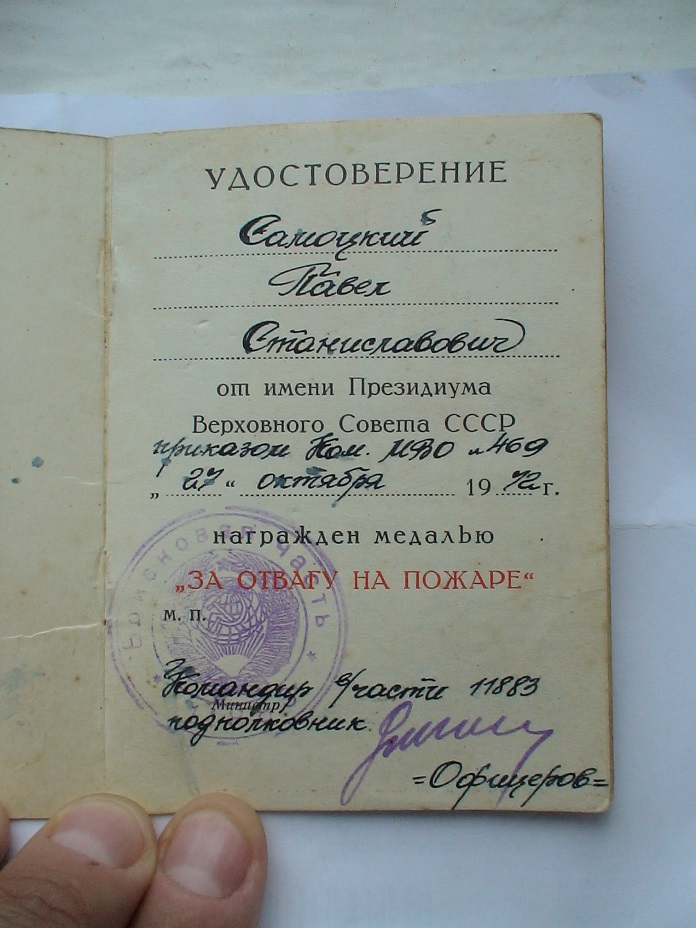 УДОСТОВЕРЕНИЕ
Самоцкий
Павел
Станиславович
от имени Президиума
Верховного Совета СССР
приказом Ком. МВО №469
„27“ октября 1972 г.
награжден медалью
„ЗА ОТВАГУ НА ПОЖАРЕ“
м. п.
Командир в/части 11883
Министр
подполковник
=Офицеров=
войсковая часть